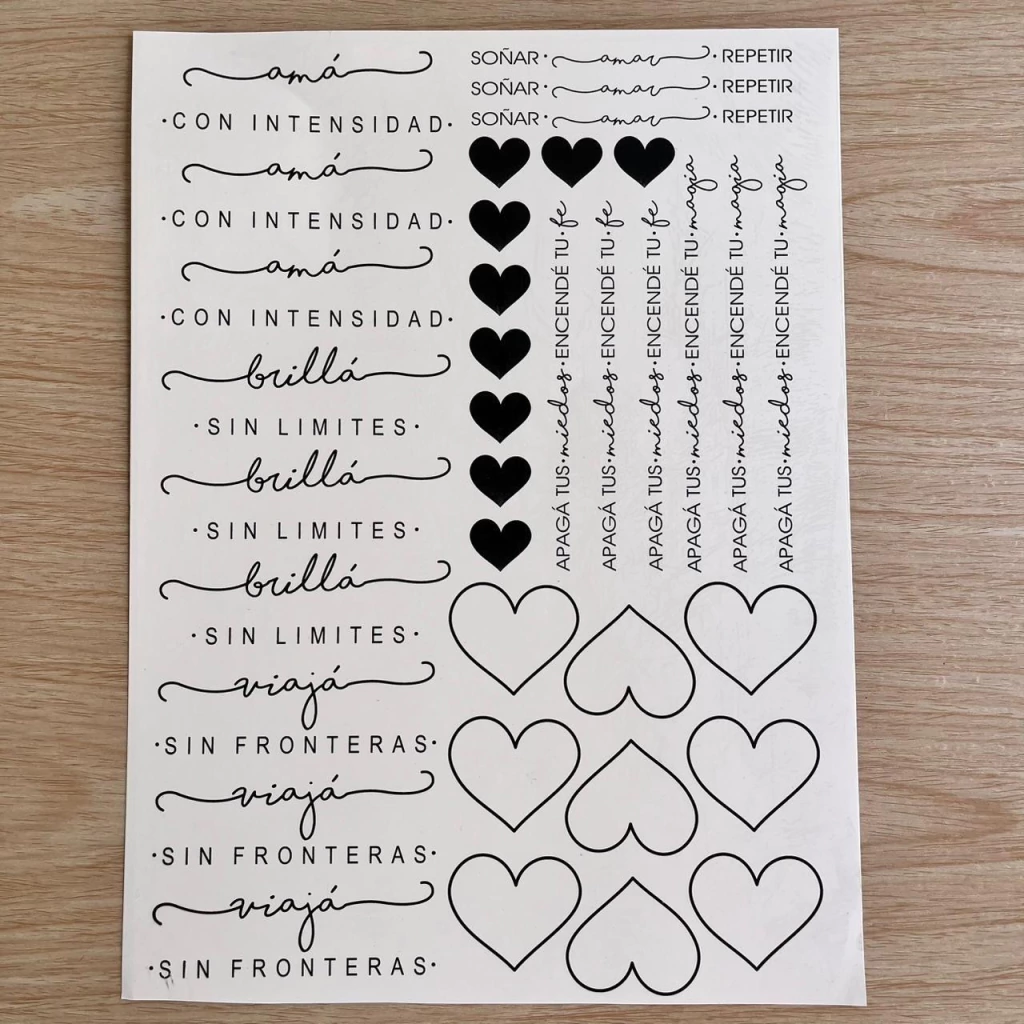 amá
·CON INTENSIDAD·
amá
·CON INTENSIDAD·
amá
·CON INTENSIDAD·
brillá
·SIN LIMITES·
brillá
·SIN LIMITES·
brillá
·SIN LIMITES·
viajá
·SIN FRONTERAS·
viajá
·SIN FRONTERAS·
viajá
·SIN FRONTERAS·
SOÑAR·amar·REPETIR
SOÑAR·amar·REPETIR
SOÑAR·amar·REPETIR
APAGÁ TUS·miedos·ENCENDÉ TU·fe
APAGÁ TUS·miedos·ENCENDÉ TU·fe
APAGÁ TUS·miedos·ENCENDÉ TU·fe
APAGÁ TUS·miedos·ENCENDÉ TU·magia
APAGÁ TUS·miedos·ENCENDÉ TU·magia
APAGÁ TUS·miedos·ENCENDÉ TU·magia